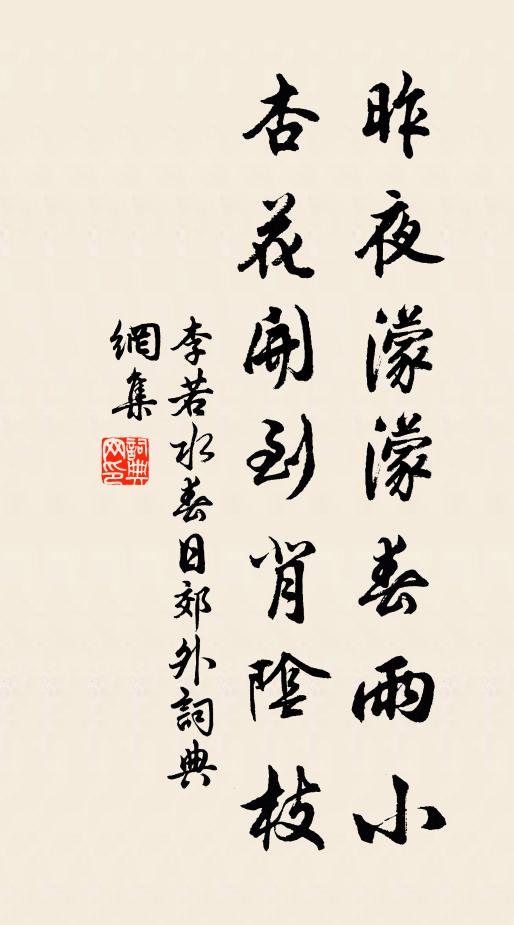 昨夜濛濛春雨小
杏花開到背陰枝
李若水春日郊外詞典
網集
詞典网印